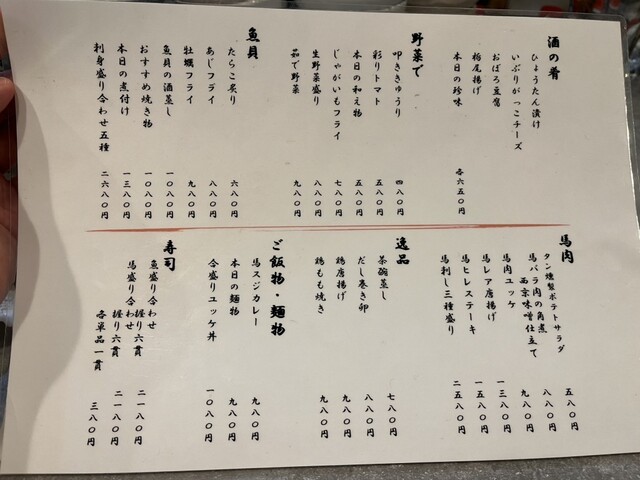 酒の肴
ひょうたん漬け
いぶりがっこチーズ
おぼろ豆腐
栃尾揚げ
本日の珍味
各六五〇円
野菜で
叩ききゅうり 四八〇円
彩りトマト 五八〇円
本日の和え物 五八〇円
じゃがいもフライ 七八〇円
生野菜盛り 八八〇円
茹で野菜 九八〇円
魚貝
たらこ炙り 六八〇円
あじフライ 八八〇円
牡蠣フライ 九八〇円
魚貝の酒蒸し 一〇八〇円
おすすめ焼き物 一〇八〇円
本日の煮付け 一三八〇円
刺身盛り合わせ五種 二六八〇円
馬肉
タン燻製ポテトサラダ 五八〇円
馬バラ肉の角煮 西京味噌仕立て 八八〇円
馬肉ユッケ 九八〇円
馬レア唐揚げ 一三八〇円
馬ヒレステーキ 一五八〇円
馬刺し三種盛り 二五八〇円
逸品
茶碗蒸し 七八〇円
だし巻き卵 八八〇円
鶏唐揚げ 九八〇円
鶏もも焼き 九八〇円
ご飯物・麺物
馬スジカレー 九八〇円
本日の麺物 九八〇円
合盛りユッケ丼 一〇八〇円
寿司
魚盛り合わせ 握り六貫 二一八〇円
馬盛り合わせ 握り六貫 二一八〇円
各単品一貫 三八〇円